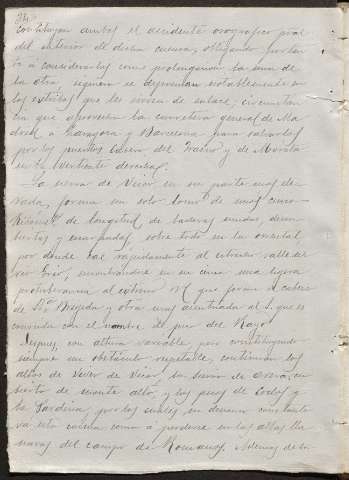 24
constituyan ambos el accidente orografico prāl
del interior de dicha cuenca, obligando por tan
to á considerarlas como prolongacion la una de
la otra, siquiera se depriman notablemente en
los estribos que les sirven de enlace; circunstan
cia que aprovecha la carretera general de Ma
drid á Zaragoza y Barcelona para salvarlas
por los puertos
del Frasno y de Morata
en la vertiente derecha.
La sierra de Vicor en su parte mas ele
vada, forma un solo lomo de unos cinco
kilomets de longitud de laderas unidas, descu
biertas y escarpadas, sobre todo en la oriental,
por donde cae rápidamente al estrecho valle del
rio Grio, encontrándose en su cima una ligera
protuberancia al estremo N. que forma la cabeza
de Sta Brigida y otra mas acentuada al S. que es
conocida con el nombre de pico del Rayo.
Sigue, con altura variable, pero constituyendo
siempre un obstáculo respetable, continúan los
altos de Viver de Vicor, la sierra de
cu
bierto de monte alto, y los picos de Codos y
la Sardera, por los cuales en descenso constante
va esta cadena como á perderse en las altas lla
nuras del campo de Romanos. Ademas de la